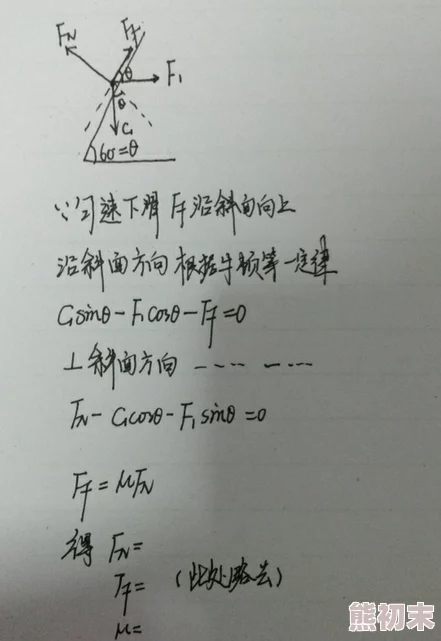 FN Ff
θ F1
θ
G
60°=θ
∵匀速下滑 Ff沿斜面向上
沿斜面方向 根据牛顿第一定律
Gsinθ-F1cosθ-Ff=0
⊥斜面方向 ---- ----
FN-Gcosθ-F1sinθ=0
Ff=μFN
得 FN=
Ff= (此处略去)
μ=
熊初末